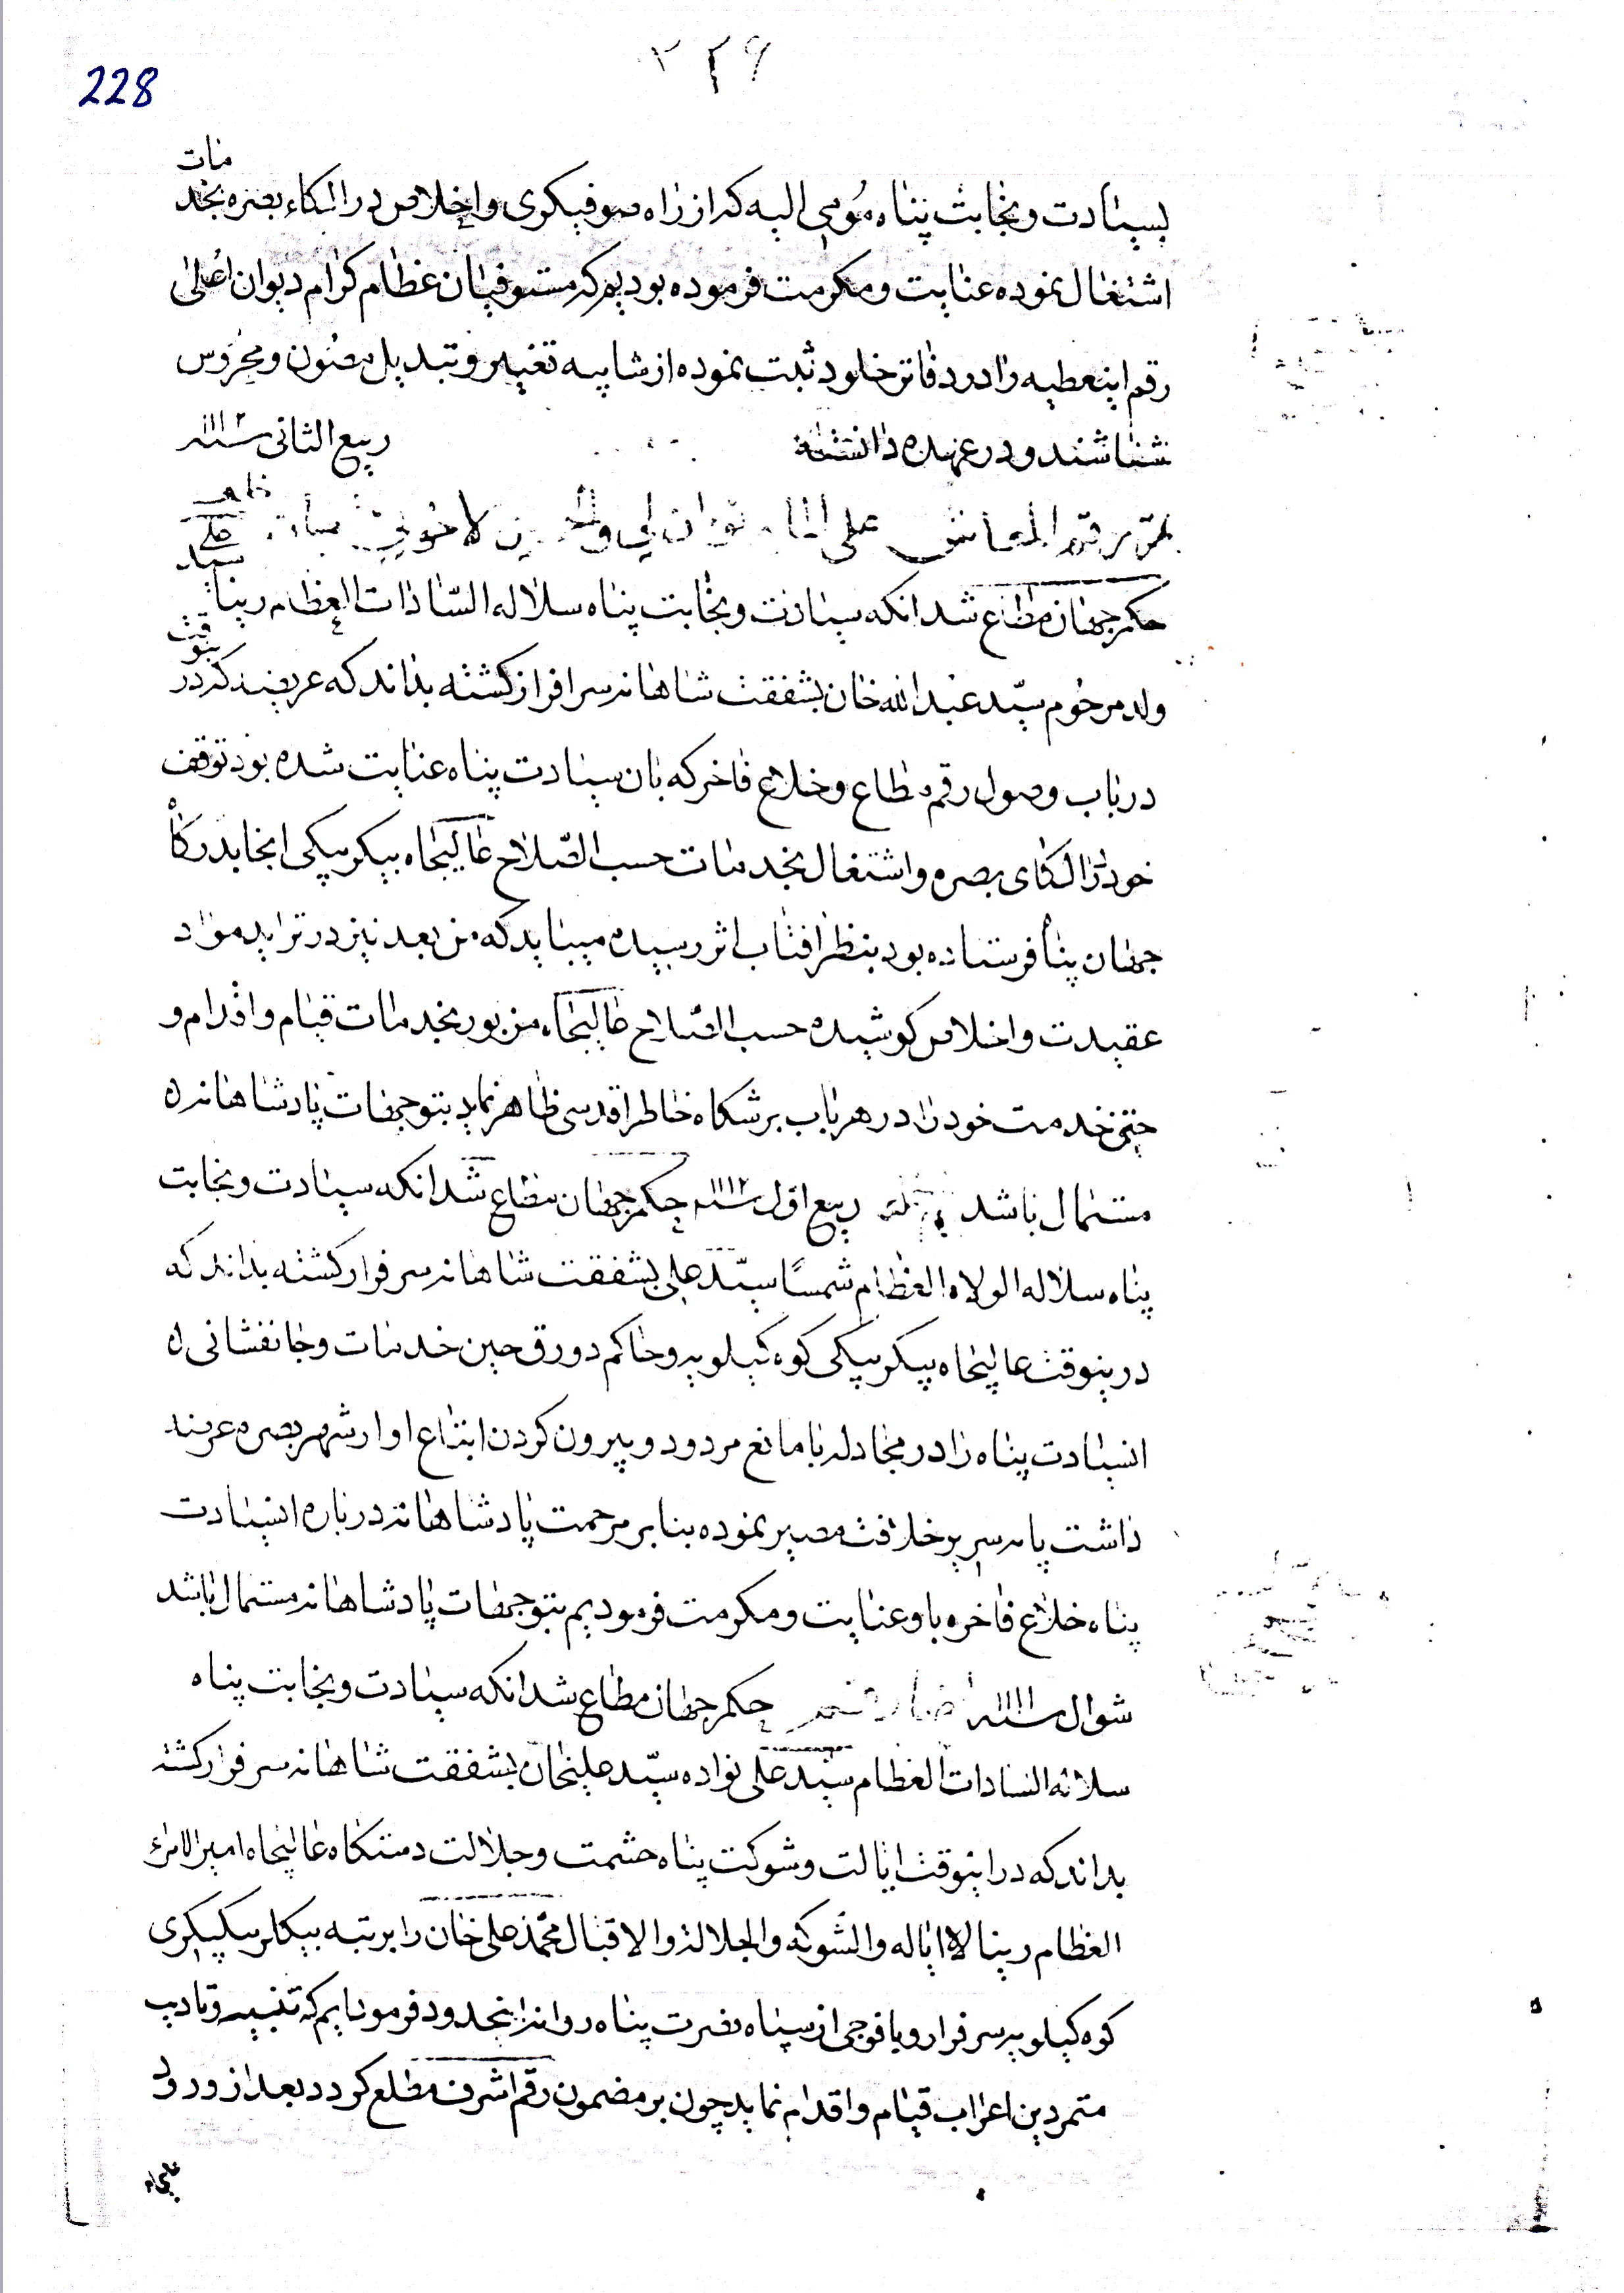 228
۲۲۹
بسیادت و نجابت پناه مُومی الیه که از راه صوفیکری و اخلاص در الکاء بصره بخدمات
اشتغال نموده عنایت و مکرمت فرموده بودیم که مستوفیان عظام کرام دیوان اعلی
رقم اینعطیه را در دفاتر خلود ثبت نموده از شایبه تغییر و تبدیل مصون و محروس
شناسند و در عهده دانسته ربیع الثانی سنه ۱۱۱۲
رقم المعاش علی
حکم جهان مطاع شد انکه سیادت و نجابت پناه سلاله السّادات العظام زینا سید علی
ولد مرحوم سیّد عبدالله خان بشفقت شاهانه سرافراز کشته بداند که عریضه که در ینوقت
در باب وصول رقم مطاع و خلاع فاخر که بان سیادت پناه عنایت شده بود توقف
خود در الکای بصره و اشتغال بخدمات حسب الصّلاح عالیجاه بیکربیکی انجا بدرکاه
جهان پناه فرستاده بود بنظر افتاب اثر رسیده میباید که من بعد نیز در تزاید مواد
عقیدت و اخلاص کوشیده حسب الصّلاح عالیجاه مزبور بخدمات قیام و اقدام و
خدمت خود را در هر باب بر خاطر اقدسی ظاهر نماید بتوجهات پادشاهانه
مستمال باشد ربیع اول سنه ۱۱۱۲ حکم جهان مطاع شد انکه سیادت و نجابت
پناه سلاله الولاه العظام شمسًا سیّد علی بشفقت شاهانه سرفراز کشته بداند که
درینوقت عالیجاه بیکربیکی کوه کیلویه و حاکم دورق حین خدمات و جانفشانی
انسیادت پناه را در مجادله با مانع مردود و بیرون کردن اتباع او از شهر بصره عرضه
داشت پایه سریر خلافت مصیر نموده بنا بر مرحمت پادشاهانه درباره انسیادت
پناه خلاع فاخره باو عنایت و مکرمت فرمودیم بتوجهات پادشاهانه مستمال باشد
شوال سنه ۱۱۱۱ حکم جهان مطاع شد انکه سیادت و نجابت پناه
سلاله السادات العظام سیّد علی نواده سیّد علیخان بشفقت شاهانه سرفراز کشته
بداند که در اینوقت ایالت و شوکت پناه حشمت و جلالت دستکاه عالیجاه امیرالامراء
العظام زینا لا ایاله والشوکه والجلاله والاقبال محمّد علی خان را برتبه بیکلربیکیکری
کوه کیلویه سرفراز و با فوجی از سپاه نصرت پناه روانه انحدود فرموده ایم که تنبیه و تادیب
متمردین اعراب قیام و اقدام نماید چون بر مضمون رقم اشرف مطلع کردد بعد از ورود
عالیجاه